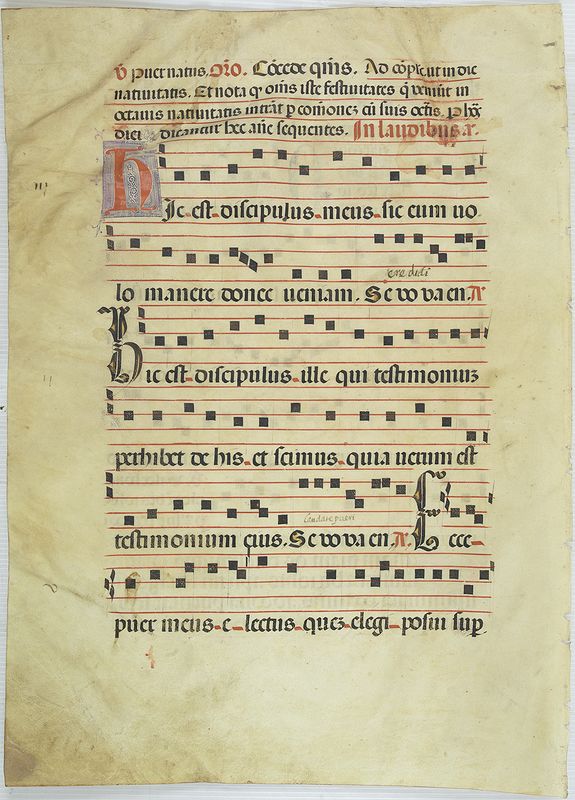 V̊ Puer natus. Oro. Cōcede qm̄s. Ad cōplet̄ ut in die
natiuitatis. Et nota qͥ om̄s iste festiuitates q̄ ueniūt in
octauis natiuitatis intrāt p comōnez cū suis octīs. P hōr
diei dicantur hec añe sequentes. In laudibus. a.
Hic-est-discipulus-meus-sic eum uo
ere didi
lo manere donec ueniam. Se vo va en. A
Hic est-discipulus-ille qui testimoniuz
perhibet de his-et scimus-quia uerum est
laudate pueri
testimonium eius. Se vo va en. A. Ecce-
puer meus-e-lectus-quez-elegi-posui sup.